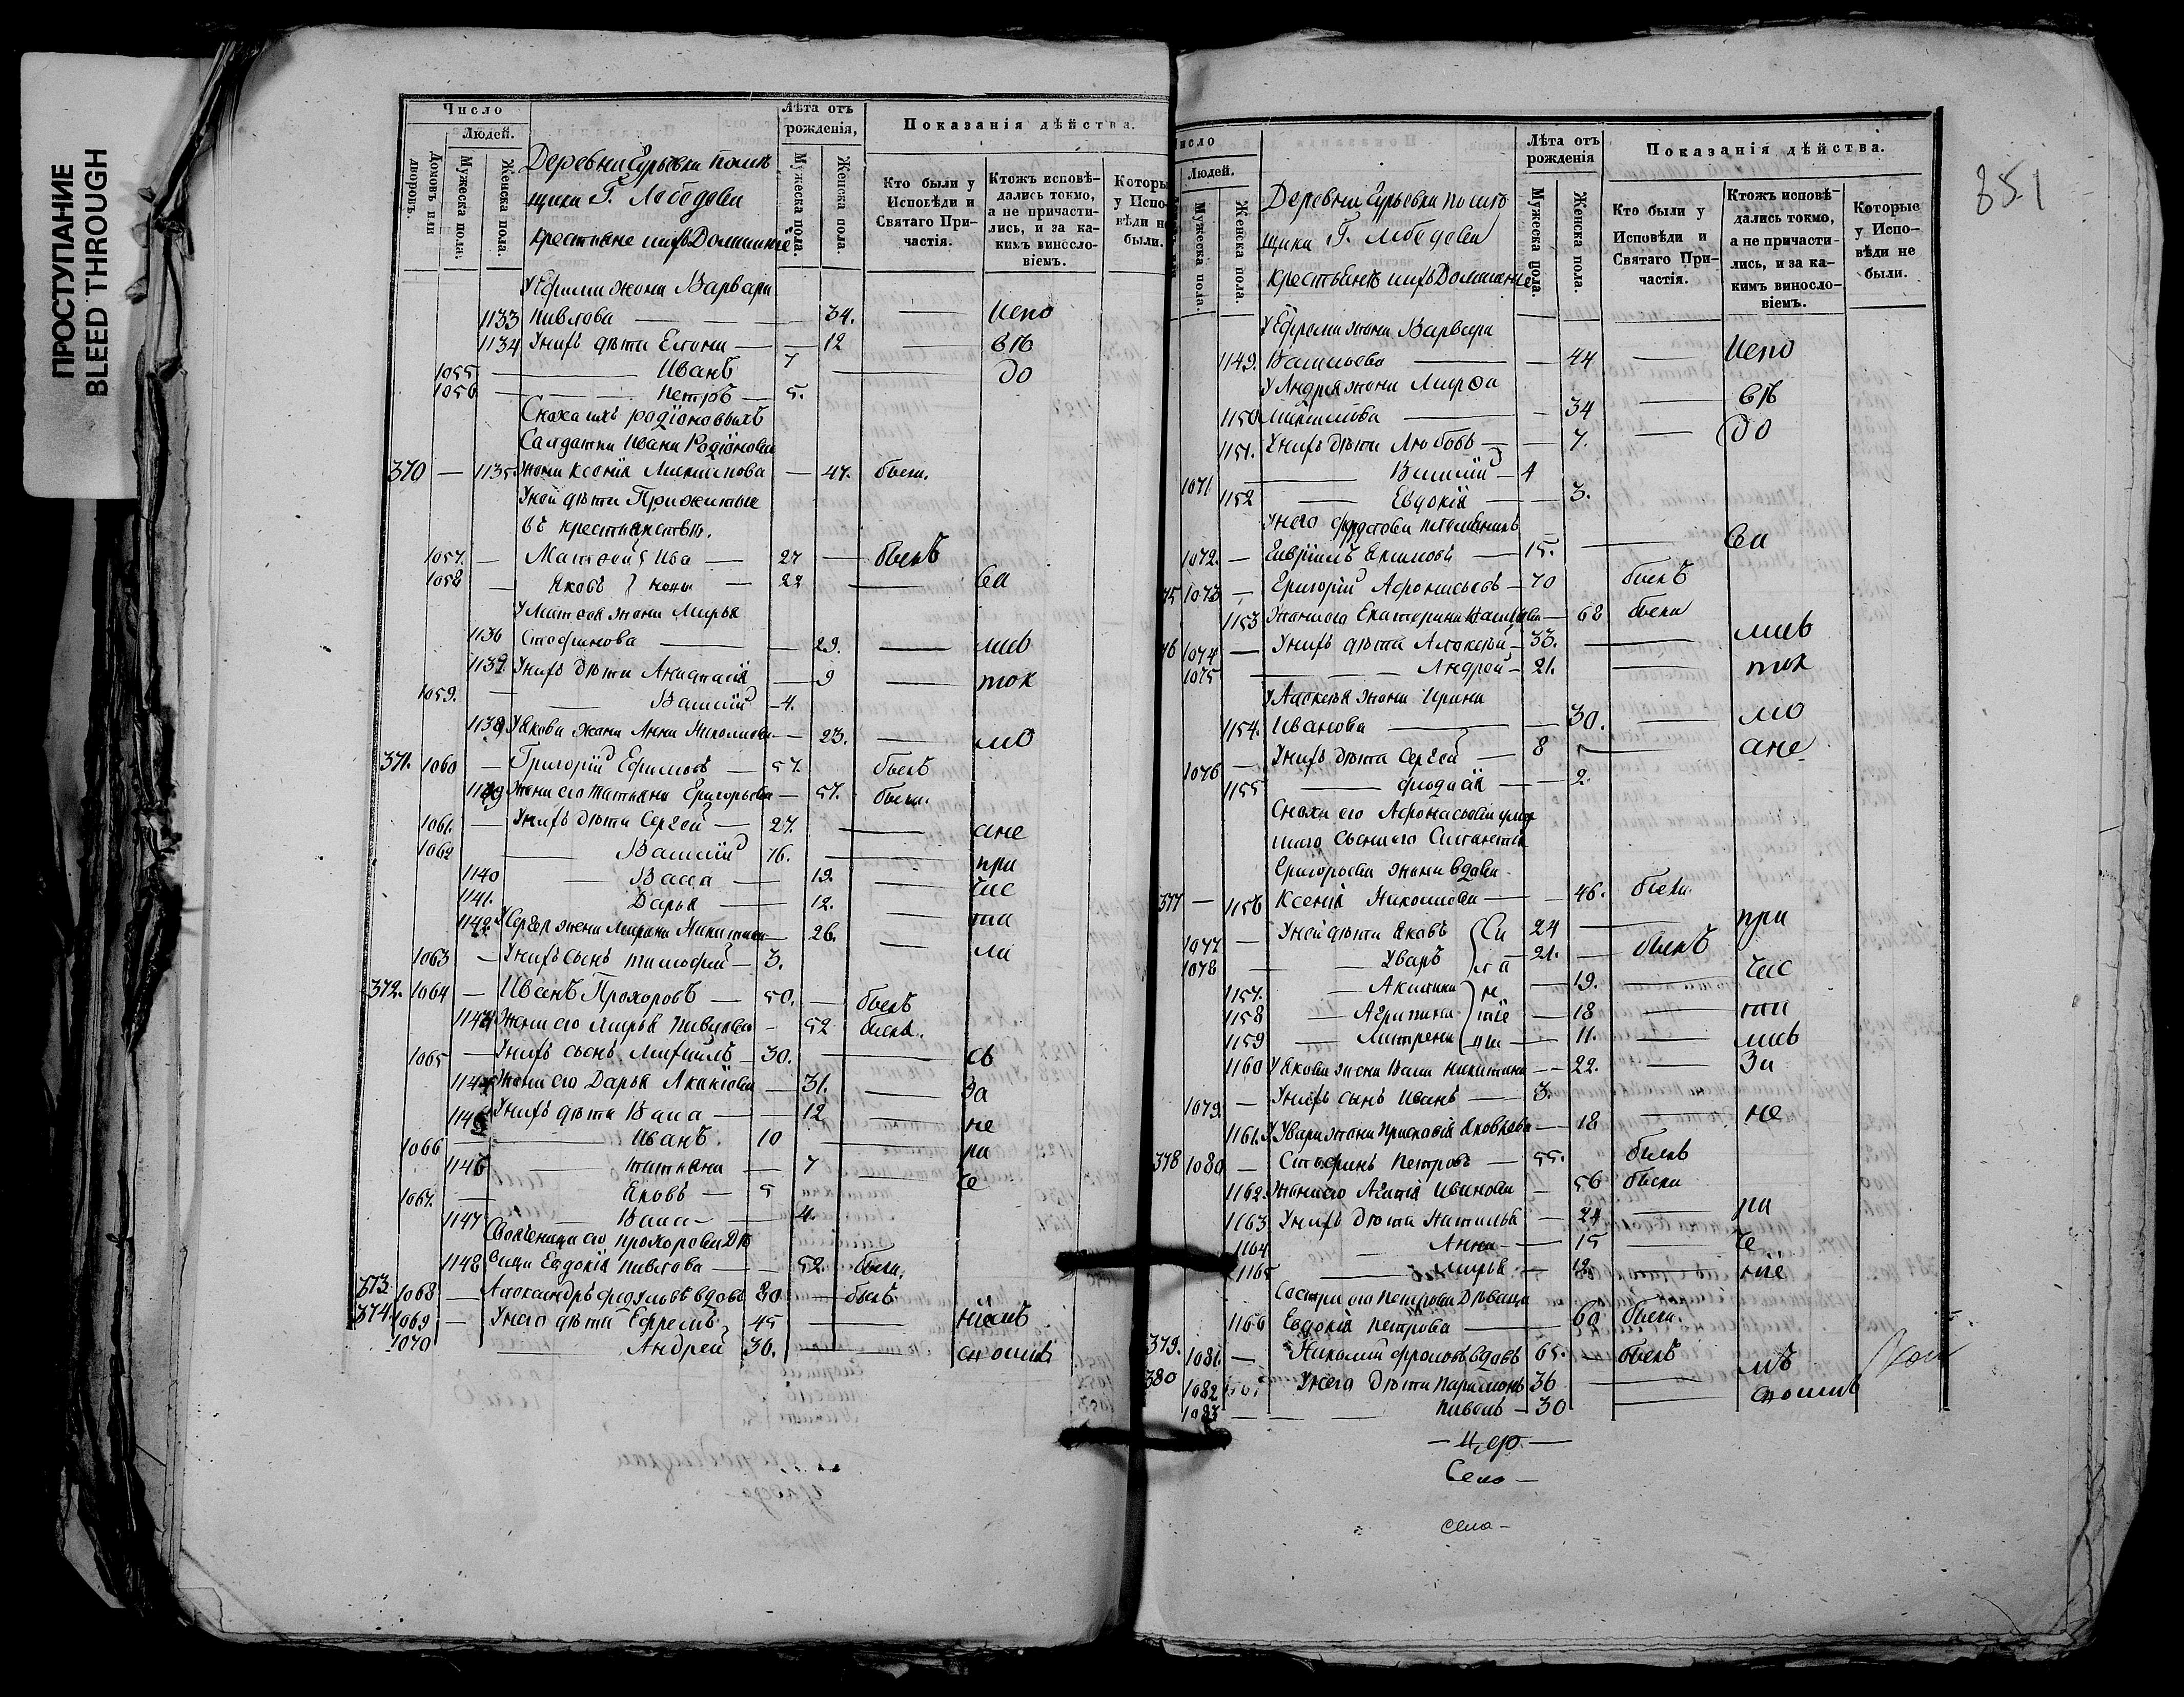 ПРОСТУПАНИЕ
BLEED THROUGH
Число
Людей.
Домовъ или дворовъ.
Мужеска пола.
Женска пола.
Деревни Гурьевки помѣ
щика Г. Лебедева
крестьяне и ихъ Домашніе
Лѣта отъ рожденія,
Мужеска пола.
Женска пола.
Показанія дѣйства.
Кто были у Исповѣди и Святаго Причастія.
Ктожъ исповѣдались токмо, а не причастились, и за какимъ винословіемъ.
Которы у Испо вѣди не были.
У Ефима жена Варвара
1133 Павлова — 34. — испо
1134 У нихъ дѣти Елена — 12 — вѣ
1055 — Иванъ 7 — до
1056 — Петръ — 5.
Сноха ихъ родіоновыхъ
Салдатка Ивана Родіонова
370 — 1135 жена Ксенія Михайлова — 47. была.
У ней дѣти Прижитые
въ крестьянствѣ.
1057. — Матвей } Ива — 27 — былъ
1058 — Яковъ } новы — 22 — ва
У Матвея жена Марья
1136 Стефанова — 29. — лись
1137 У нихъ дѣти Анастасія — 9 — ток
1059. — Василій — 4.
1138 У Якова жена Анна Николаева — 23. — мо
371. 1060 — Григорій Ефимовъ — 57. былъ
1139 Жена его Татьяна Григорьева — 57. была.
1061. — У нихъ дѣти Сергей — 27. — ане
1062 — Василій 16. — при
1140 — Васса — 19. — час
1141. Дарья — 12. — ти
1142 У Сергея жена Марина Никитина — 26. — ли
1063 — У нихъ сынъ Тимофей — 3.
372. 1064 — Иванъ Прохоровъ — 50. — былъ
1143 Жена его Марья Павлова — 52 была.
1065 — У нихъ сынъ Михаилъ — 30. — сь
1144 Жена его Дарья Акакіева — 31. — За
1145 У нихъ дѣти Васа — 12 — не
1066 — Иванъ. 10 — ра
1146 — Татьяна — 7 — че
1067. — Яковъ — 5
1147 — Васи — 4.
Свояченица его Прохорова Дѣ
1148 вица Евдокія Павлова — 52. была.
373. 1068 — Александръ Федуловъ вдовъ 80 — былъ
374. 1069 — У него дѣти Ефремъ 45 — ніемъ
1070 Андрей 36. —
351
исло
Людей.
Мужеска пола.
Женска пола.
Деревни Гурьевки помѣ
щика Г. Лебедева
крестьянѣ и ихъ Домашніе
Лѣта отъ рожденія
Мужеска пола.
Женска пола.
Показанія дѣйства.
Кто были у Исповѣди и Святаго Причастія.
Ктожъ исповѣдались токмо, а не причастились, и за какимъ винословіемъ.
Которые у Исповѣди не были.
У Ефрема жена Варвара
1149. Васильева — 44 — испо
У Андрея жена Марфа
1150 Михайлова — 34 — вѣ
1151. У нихъ дѣти Любовь — 7. — до
1071 — Василій — 4
1152 — Евдокія — 3.
У него племянникъ
1072. — Гавріилъ Акимовъ — 15. — ва
75 1073 — Григорій Афонасьевъ — 70 былъ
1153 Жена его Екатерина — 68 была
76 1074 — У нихъ дѣти Алексѣй — 33. — лись
1075 — Андрей — 21. — ток
У Алексѣя жена Ирина
1154. Иванова — 30. — мо
1076 — У нихъ дѣти Сергей — 8 — ане
1155 — Федосія — 2.
Сноха его Афонасьева умер
шаго сына его
Григорьева жена вдова
377 — 1156 Ксенія Николаева — 46. была.
1077 — У ней дѣти Яковъ 24 — при
1078 — Уваръ — 21. — былъ
1157. — Акилина — 19. — час
1158 — Агрипина — 18 — ти
1159 — Матрена — 11. — лись
1160 У Якова жена Васа Никитина — 22. — За
1079. — У нихъ сынъ Иванъ — 3.
1161. У Увара жена Прасковія Яковлева — 18 — не
378 1080 — Стефанъ Петровъ — 55. былъ
1162. Жена его Агапія Иванова — 56 была
1163 У нихъ дѣти Наталья — 24 — ра
1164 — Анна — 15 — че
1165 — Марья — 12. — ніе
Сестра его Петрова Дѣвица
1166 Евдокія Петрова — 60 была.
379. 1081. — Николай Фроловъ вдовъ 65. — былъ
380 1082 У него дѣти Парамонъ 36 — мъ
1083 — Павелъ — 30
Село —
села —